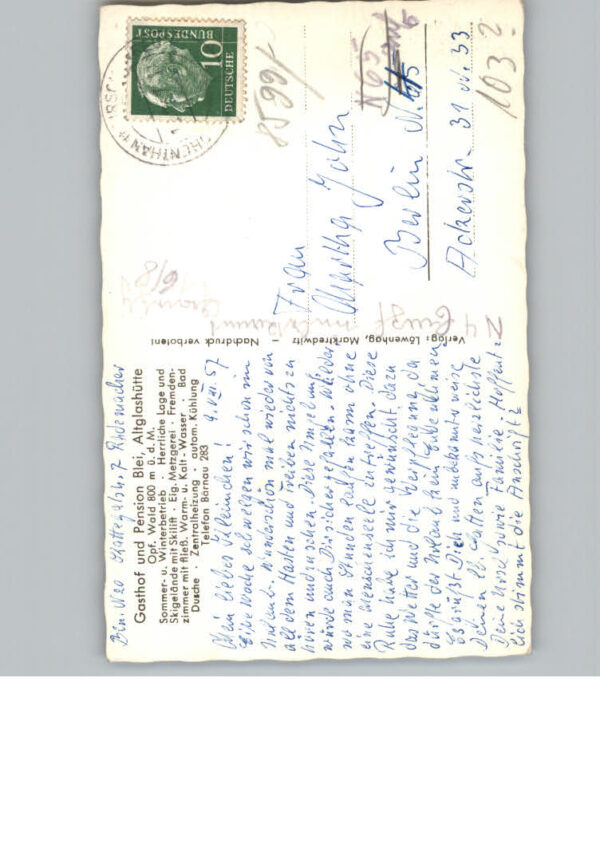 Bln. N20 7 Rademacher
Gasthof und Pension Blei, Altglashütte
Opf. Wald 800 m ü. d. M.
Sommer- u. Winterbetrieb · Herrliche Lage und
Skigelände mit Skilift · Eig. Metzgerei · Fremden-
zimmer mit fließ. Warm- u. Kalt-Wasser · Bad
Dusche · Zentralheizung · autom. Kühlung
Telefon Bärnau 283
4. VIII. 57
Mein liebes Kleinchen!
Eine Woche schwelgen wir schon im
Urlaub. Wunderschön mal wieder von
all dem Hasten und Treiben nichts zu
hören und zu sehen. Diese Umgebung
würde auch Dir sicher gefallen. Wälder
wo man Stunden laufen kann ohne
eine Menschenseele zu treffen. Diese
Ruhe habe ich mir gewünscht dazu
das Wetter und die Verpflegung, da
dürfte der Urlaub kein Ende nehmen
Es grüßt Dich und unbekannterweise
Deinen lb. aufs herzlichste
Deine sowie Familie. Hoffent-
lich stimmt die Anschrift?
Verlag: Löwenhag, Marktredwitz – Nachdruck verboten!
DEUTSCHE
BUNDESPOST
10
8599/
Frau
Martha John
Berlin N.
N65
Ackerstr. 31 v. 33
103-
N4
6/8